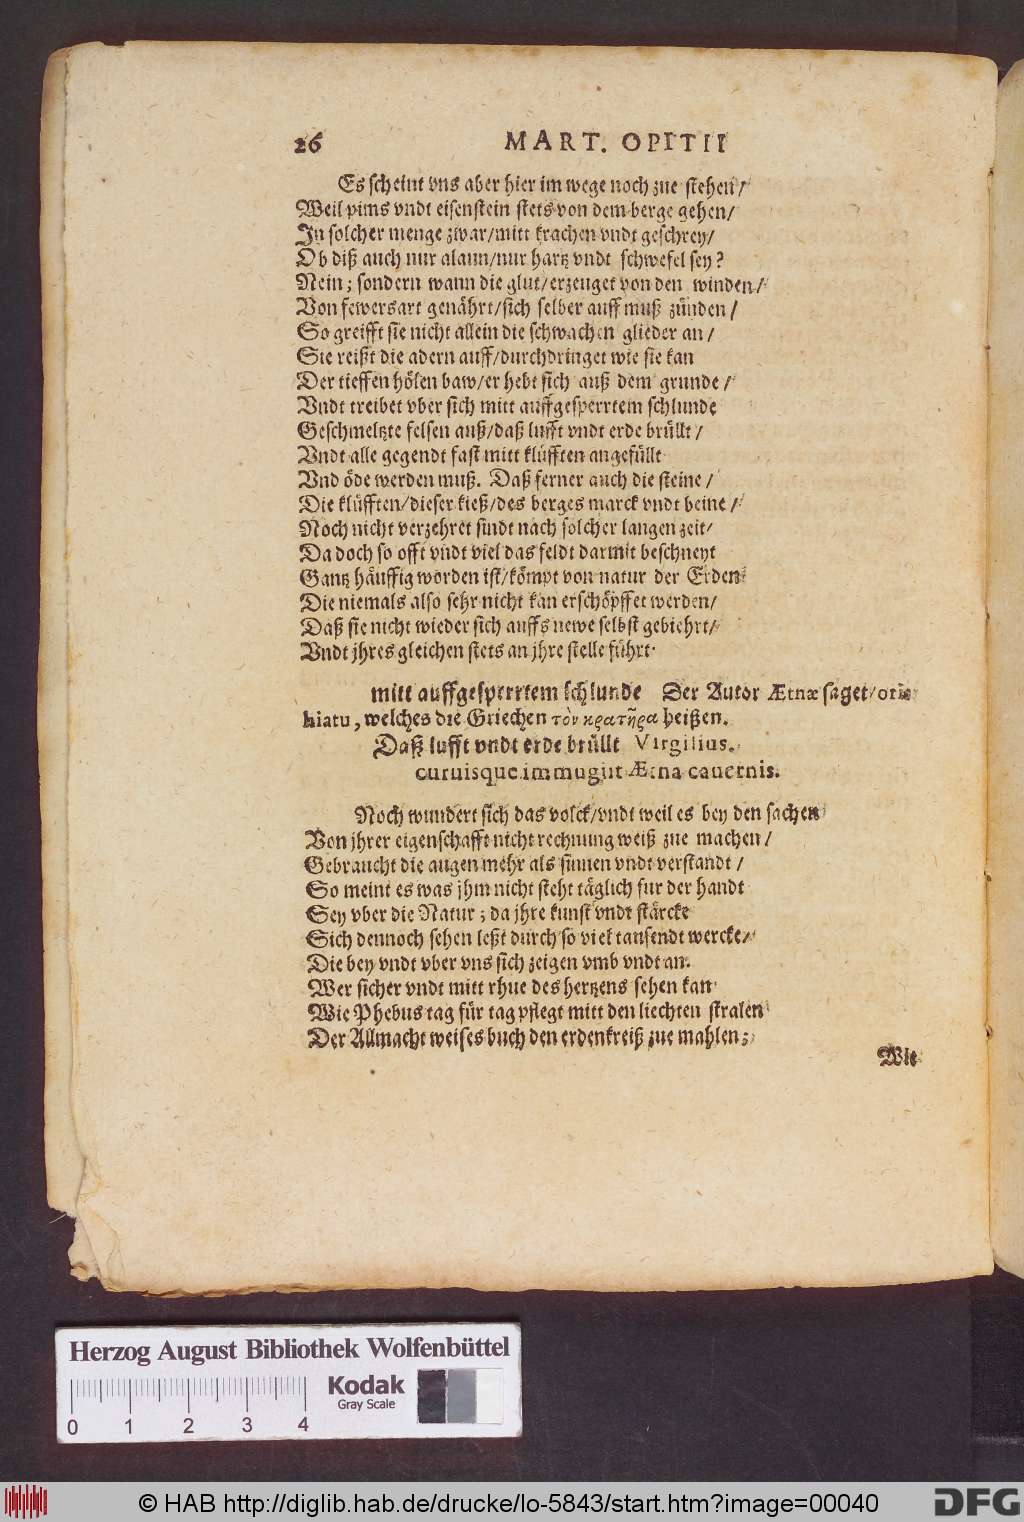 26 MART. OPITII
Es scheint vns aber hier im wege noch zue stehen/
Weil pims vndt eisenstein stets von dem berge gehen/
Jn solcher menge zwar/mitt krachen vndt geschrey/
Ob diß auch nur alaun/nur hartz vndt schwefel sey?
Nein; sondern wann die glut/erzeuget von den winden/
Von fewersart genährt/sich selber auff muß zünden/
So greifft sie nicht allein die schwachen glieder an/
Sie reißt die adern auff/durchdringet wie sie kan
Der tieffen hölen baw/er hebt sich auß dem grunde/
Vndt treibet vber sich mitt auffgesperrtem schlunde
Geschmeltzte felsen auß/daß lufft vndt erde brüllt/
Vndt alle gegendt fast mitt klüfften angefüllt
Vnd öde werden muß. Daß ferner auch die steine/
Die klüfften/dieser kieß/des berges marck vndt beine/
Noch nicht verzehret sindt nach solcher langen zeit/
Da doch so offt vndt viel das feldt darmit beschneyt
Gantz häuffig worden ist/kömpt von natur der Erden
Die niemals also sehr nicht kan erschöpffet werden/
Daß sie nicht wieder sich auffs newe selbst gebiehrt/
Vndt jhres gleichen stets an jhre stelle führt.
mitt auffgesperrtem schlunde Der Autor Ætnæ saget/oris
hiatu, welches die Griechen τὸν κρατῆρα heißen.
Daß lufft vndt erde brüllt Virgilius.
curuisque immugiit Ætna cauernis.
Noch wundert sich das volck/vndt weil es bey den sachen
Von jhrer eigenschafft nicht rechnung weiß zue machen/
Gebraucht die augen mehr als sinnen vndt verstandt/
So meint es was jhm nicht steht täglich fur der handt
Sey vber die Natur; da jhre kunst vndt stärcke
Sich dennoch sehen leßt durch so viel tausendt wercke/
Die bey vndt vber vns sich zeigen vmb vndt an.
Wer sicher vndt mitt rhue des hertzens sehen kan
Wie Phebus tag für tag pflegt mitt den liechten stralen
Der Allmacht weises buch den erdenkreiß zue mahlen;
Wie
Herzog August Bibliothek Wolfenbüttel
Kodak
Gray Scale
0 1 2 3 4
© HAB http://diglib.hab.de/drucke/lo-5843/start.htm?image=00040
DFG